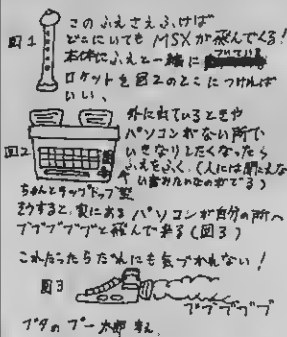 図1
このふえさえふけば
どこにいても MSXが飛んでくる!
本体にふえと一緒に
ロケットを図2のとこにつければ
いい、
図2
外に出ているときや
パソコンがない所で
いきなりしたくなったら
ふえをふく。(人には聞えな
い音みたいなのがでる)
ちゃんとチップドップ型
そうすると、家にあるパソコンが自分の所へ
ブブブブブと飛んで来る(図3)
これだったらだれにも気づかれない!
図3
ブブブブブ
ブタのプー太郎